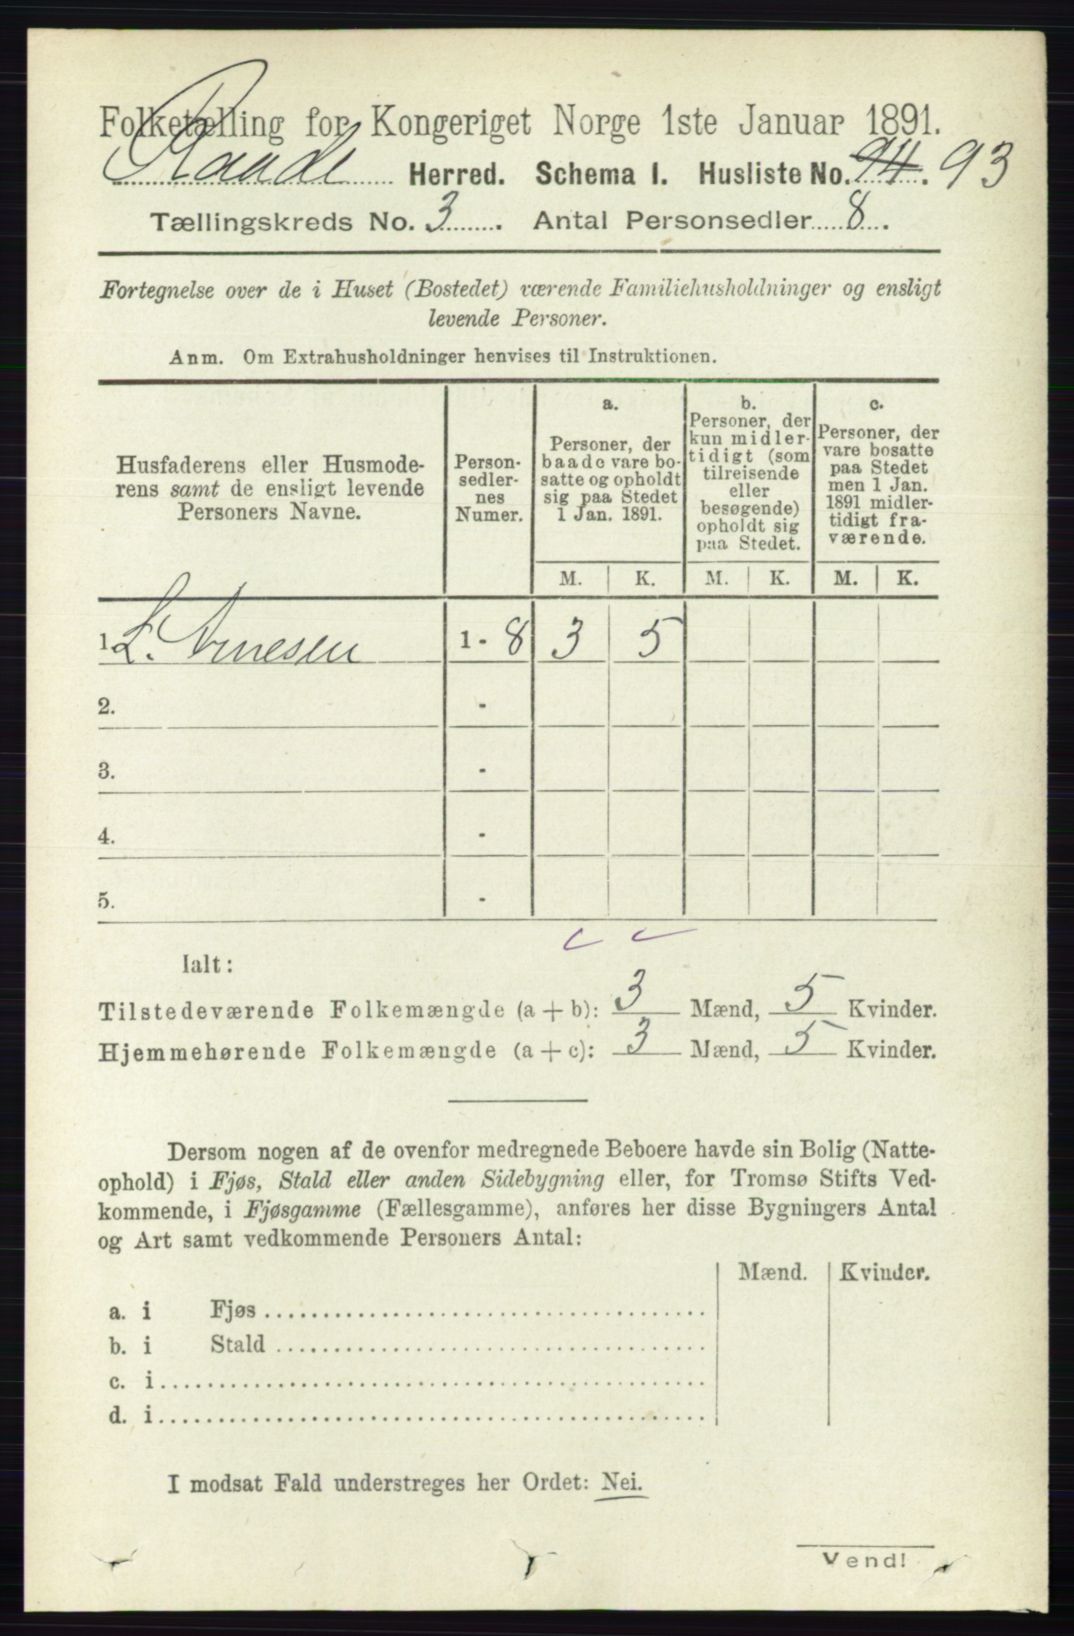 Folketælling for Kongeriget Norge 1ste Januar 1891.
Raade Herred. Schema I. Husliste No. 94. 93
Tællingskreds No. 3. Antal Personsedler 8.
Fortegnelse over de i Huset (Bostedet) værende Familiehusholdninger og ensligt
levende Personer.
Anm. Om Extrahusholdninger henvises til Instruktionen.
Husfaderens eller Husmode-
rens samt de ensligt levende
Personers Navne.
Person-
sedler-
nes
Numer.
a.
Personer, der
baade vare bo-
satte og opholdt
sig paa Stedet
1 Jan. 1891.
b.
Personer, der
kun midler-
tidigt (som
tilreisende
eller
besøgende)
opholdt sig
paa Stedet.
c.
Personer, der
vare bosatte
paa Stedet
men 1 Jan.
1891 midler-
tidigt fra-
værende.
M. K. M. K. M. K.
1. L. Arnesen 1 - 8 3 5
2. -
3. -
4. -
5. -
Ialt:
Tilstedeværende Folkemængde (a + b): 3 Mænd, 5 Kvinder.
Hjemmehørende Folkemængde (a + c): 3 Mænd, 5 Kvinder.
Dersom nogen af de ovenfor medregnede Beboere havde sin Bolig (Natte-
ophold) i Fjøs, Stald eller anden Sidebygning eller, for Tromsø Stifts Ved-
kommende, i Fjøsgamme (Fællesgamme), anføres her disse Bygningers Antal
og Art samt vedkommende Personers Antal:
Mænd. Kvinder.
a. i Fjøs
b. i Stald
c. i
d. i
I modsat Fald understreges her Ordet: Nei.
Vend!